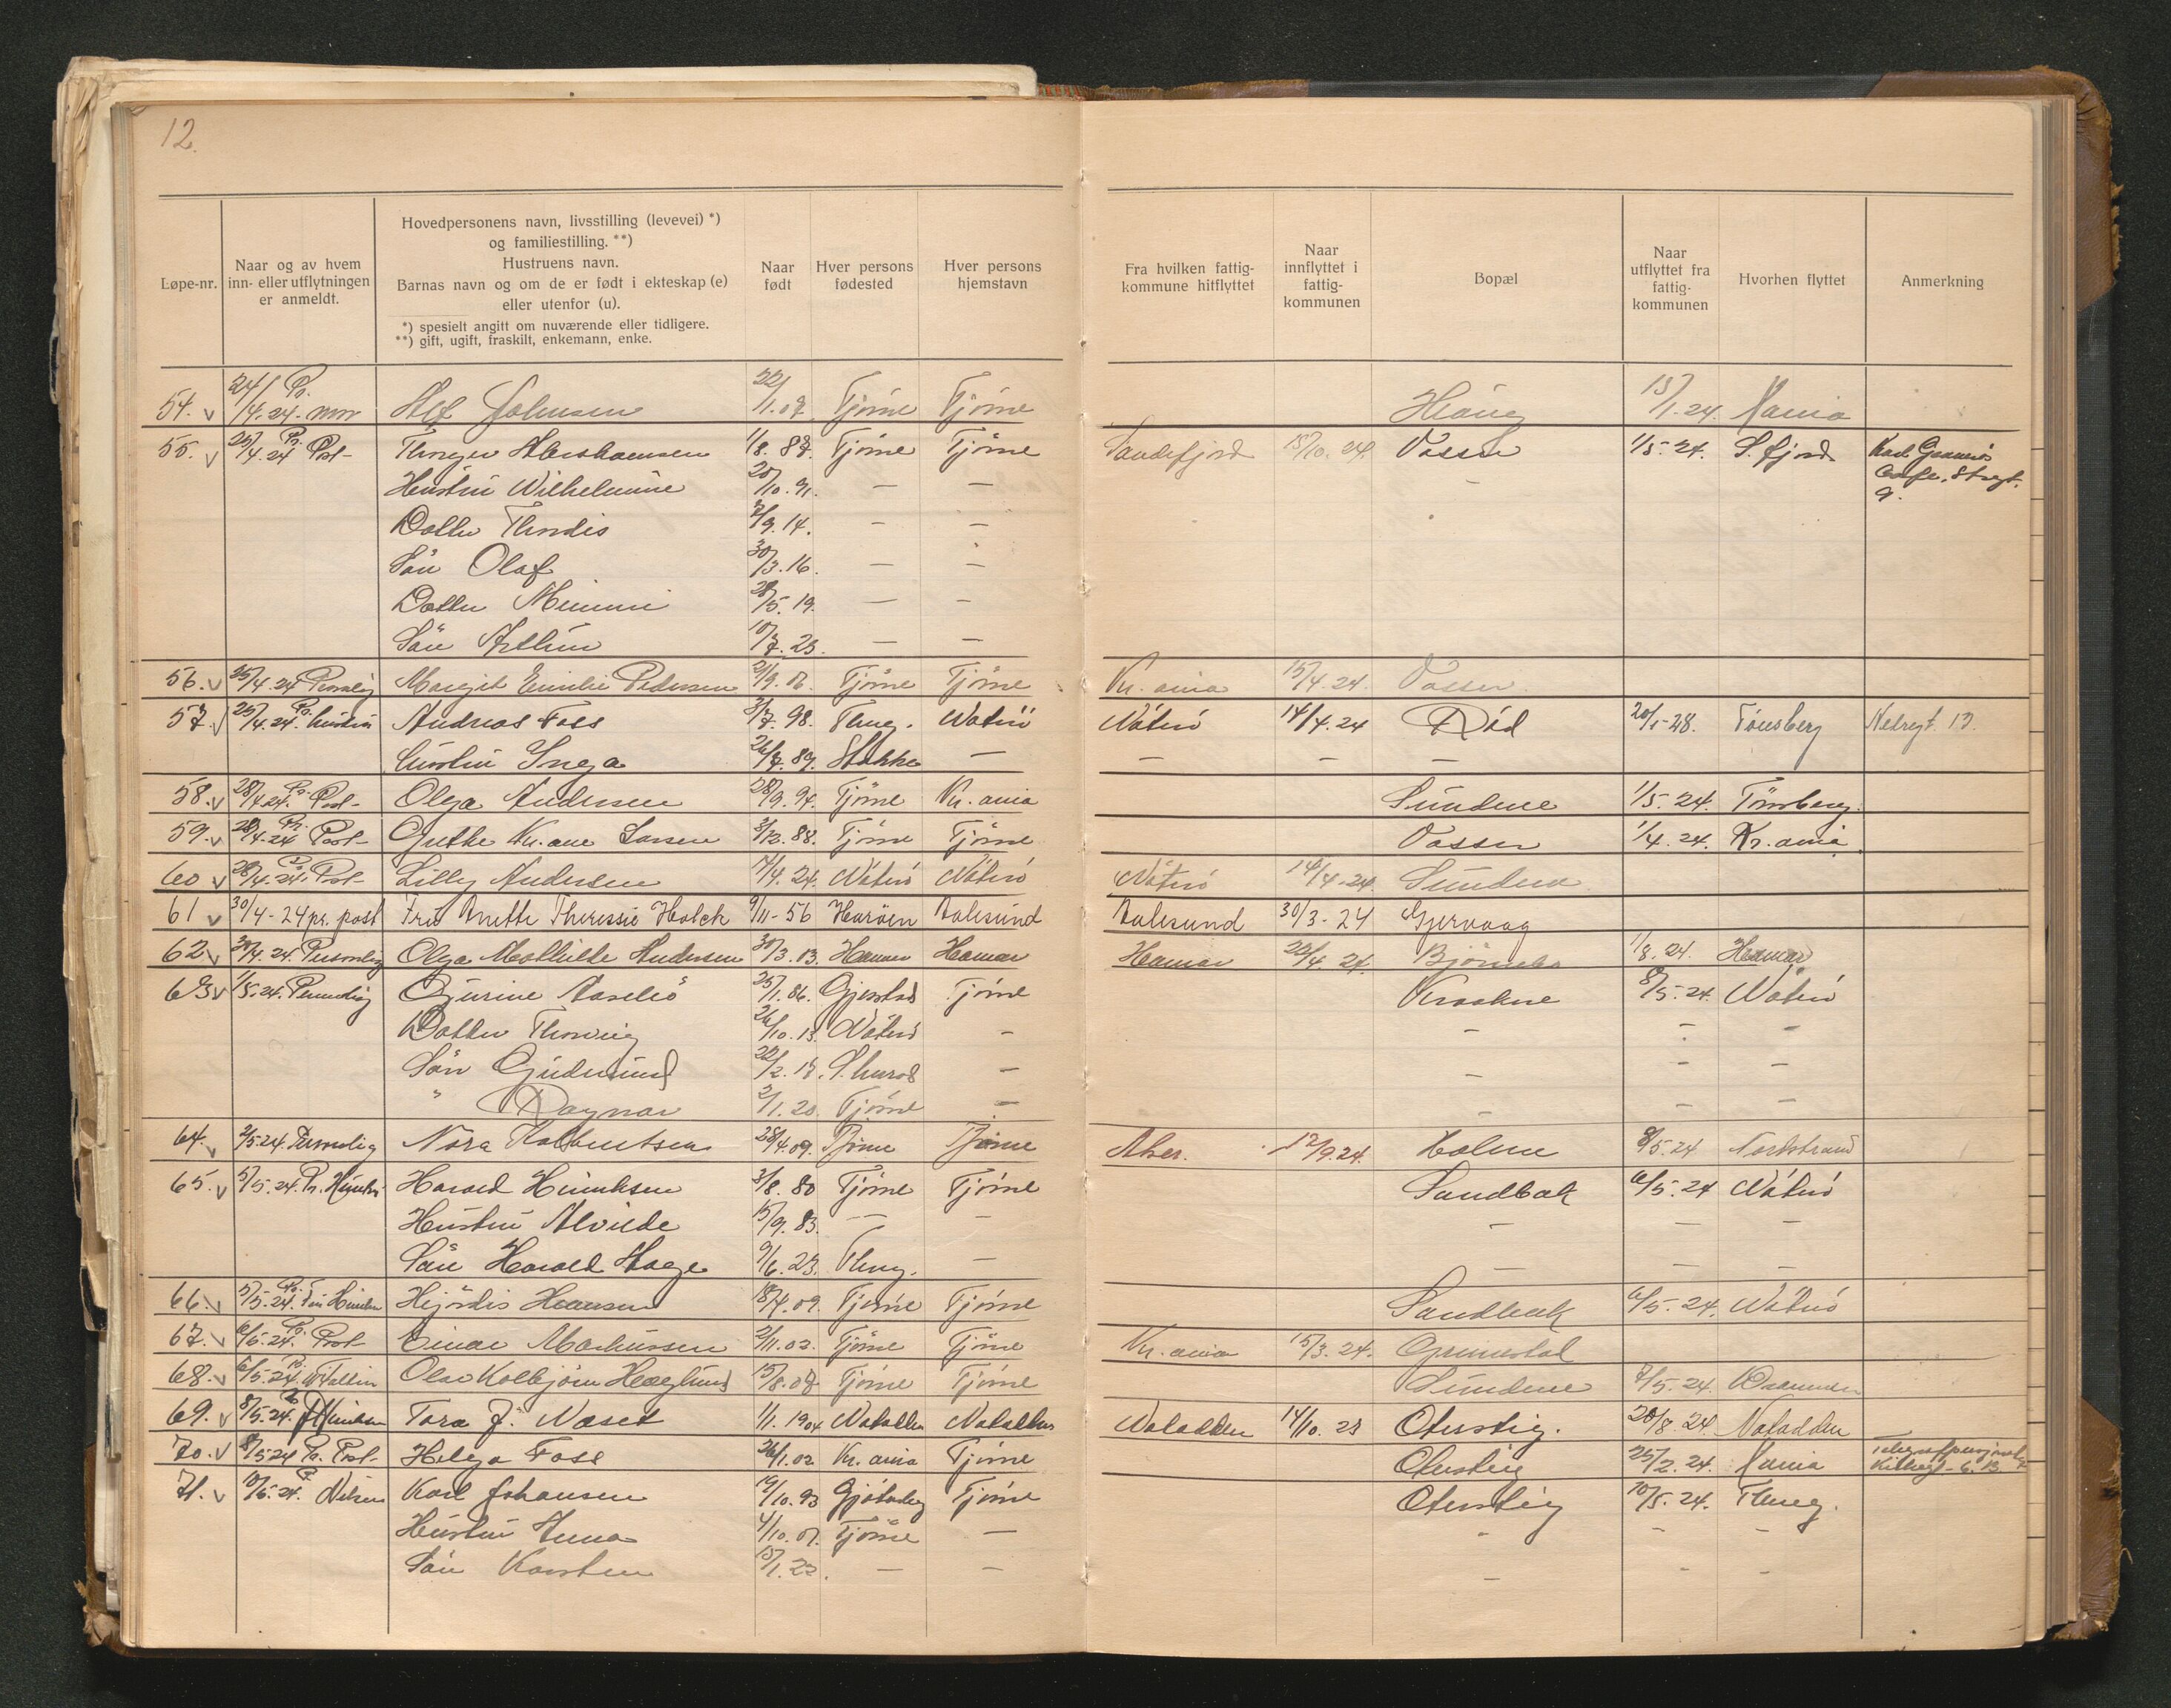 12.
Løpe-nr.
Naar og av hvem inn- eller utflytningen er anmeldt.
Hovedpersonens navn, livsstilling (levevei) *) og familiestilling. **)
Hustruens navn.
Barnas navn og om de er født i ekteskap (e) eller utenfor (u).
*) spesielt angitt om nuværende eller tidligere.
**) gift, ugift, fraskilt, enkemann, enke.
Naar født
Hver persons fødested
Hver persons hjemstavn
Fra hvilken fattigkommune hitflyttet
Naar innflyttet i fattigkommunen
Bopæl
Naar utflyttet fra fattigkommunen
Hvorhen flyttet
Anmerkning
54. v 24/4.24. Pr. Alf Johnsen 22/1.07 Tjöme Tjöme 15/1.24.
55. v 25/4.24 Pr. Post- 1/8.87. Tjöme Tjöme Sandefjord 15/10.24. Vasser 1/5.24. S.fjord
Hustru Wilhelmine 20/10.91. — —
Datter Thordis 7/9.14. — —
Sön Olaf 30/3.16. — —
Datter Mimmi 28/5.19. — —
Sön Arthur 10/7.23. — —
56. v 25/4.24 Personlig Margit Emilie Pedersen 21/9.06. Tjöme Tjöme Kr.ania 15/4.24. Vasser
57. v 25/4.24. Pr. hustru Andreas Foss 3/7.98. Tbrg. Nöterö Nöterö 14/4.24 Röd 20/1-28. Tönsberg
Hustru Inga 26/7.89. Stokke — — — —
58. v 28/4.24. Pr. Post- Olga Andersen 28/9.94. Tjöme Kr.ania Sundene 1/5.24. Tönsberg.
59. v 28/4.24 Pr. Post- Kr.ane Larsen 3/12.88. Tjöme Tjöme Vasser 1/4.24. Kr.ania.
60 v 28/4.24. Pr. Post- Lilly Andersen 14/4.24. Nöterö Nöterö Nöterö 14/4.24. Sundene
61 v 30/4-24 pr. post Fru Anette Theressie Holck 9/11-56 Haröen Aalesund Aalesund 30/3-24 Gjervaag
62 v 30/4.24. Personlig Olga Mathilde Andersen 30/3.03. Hamar Hamar Hamar 22/4.24. 1/8.24. Hamar
63 v 1/5.24. Personlig Gurine 25/1.86. Gjerstad Tjöme Kraakere 8/5.24. Nöterö
Datter 26/10.13. Nöterö — — — —
Sön Gudmund 22/2.17. — — — —
" Ragnar 2/1.20. Tjöme — — — —
64. v 2/5.24. Personlig Nora 28/4.09. Tjöme Tjöme Aker. 12/9.24. Holme 8/5.24 Nordstrand
65. v 5/5.24. Pr. Harald Henriksen 3/8.80 Tjöme Tjöme Sandbæk 6/5.24 Nöterö
Hustru Alvilde 15/9.83. — — — — —
Sön Harald Aage 9/6.23. Tbrg. — — — —
66. v 5/5.24. Pr. Hjördis Hansen 18/4.09. Tjöme Tjöme Sandbæk 6/5.24. Nöterö
67. v 6/5.24. Pr. Post Einar Markussen 2/11.02. Tjöme Tjöme Kr.ania 15/3.24. Grimestad
68. v 6/5.24. Pr. Olav Kolbjörn Hæglund 15/8.07 Tjöme Tjöme Sundene 7/5.24. Drammen
69. v 8/5.24. Pr. Tora J. Næset 1/1.1904 Notodden Notodden Notodden 14/10.23 Oterstig. 20/8.24. Notodden
70. v 8/5 24 Pr. Post- Helga Foss 26/1.02. Kr.ania Tjöme Oterstig 25/2.24.
71. v 10/5.24. Pr. Nilsen Karl Johansen 19/10.93 Gjöteborg Tjöme Oterstig 10/5.24. Tbrg.
Hustru Anna 4/10.01. Tjöme — — — —
Sön Karsten 15/1.22. — — — — —